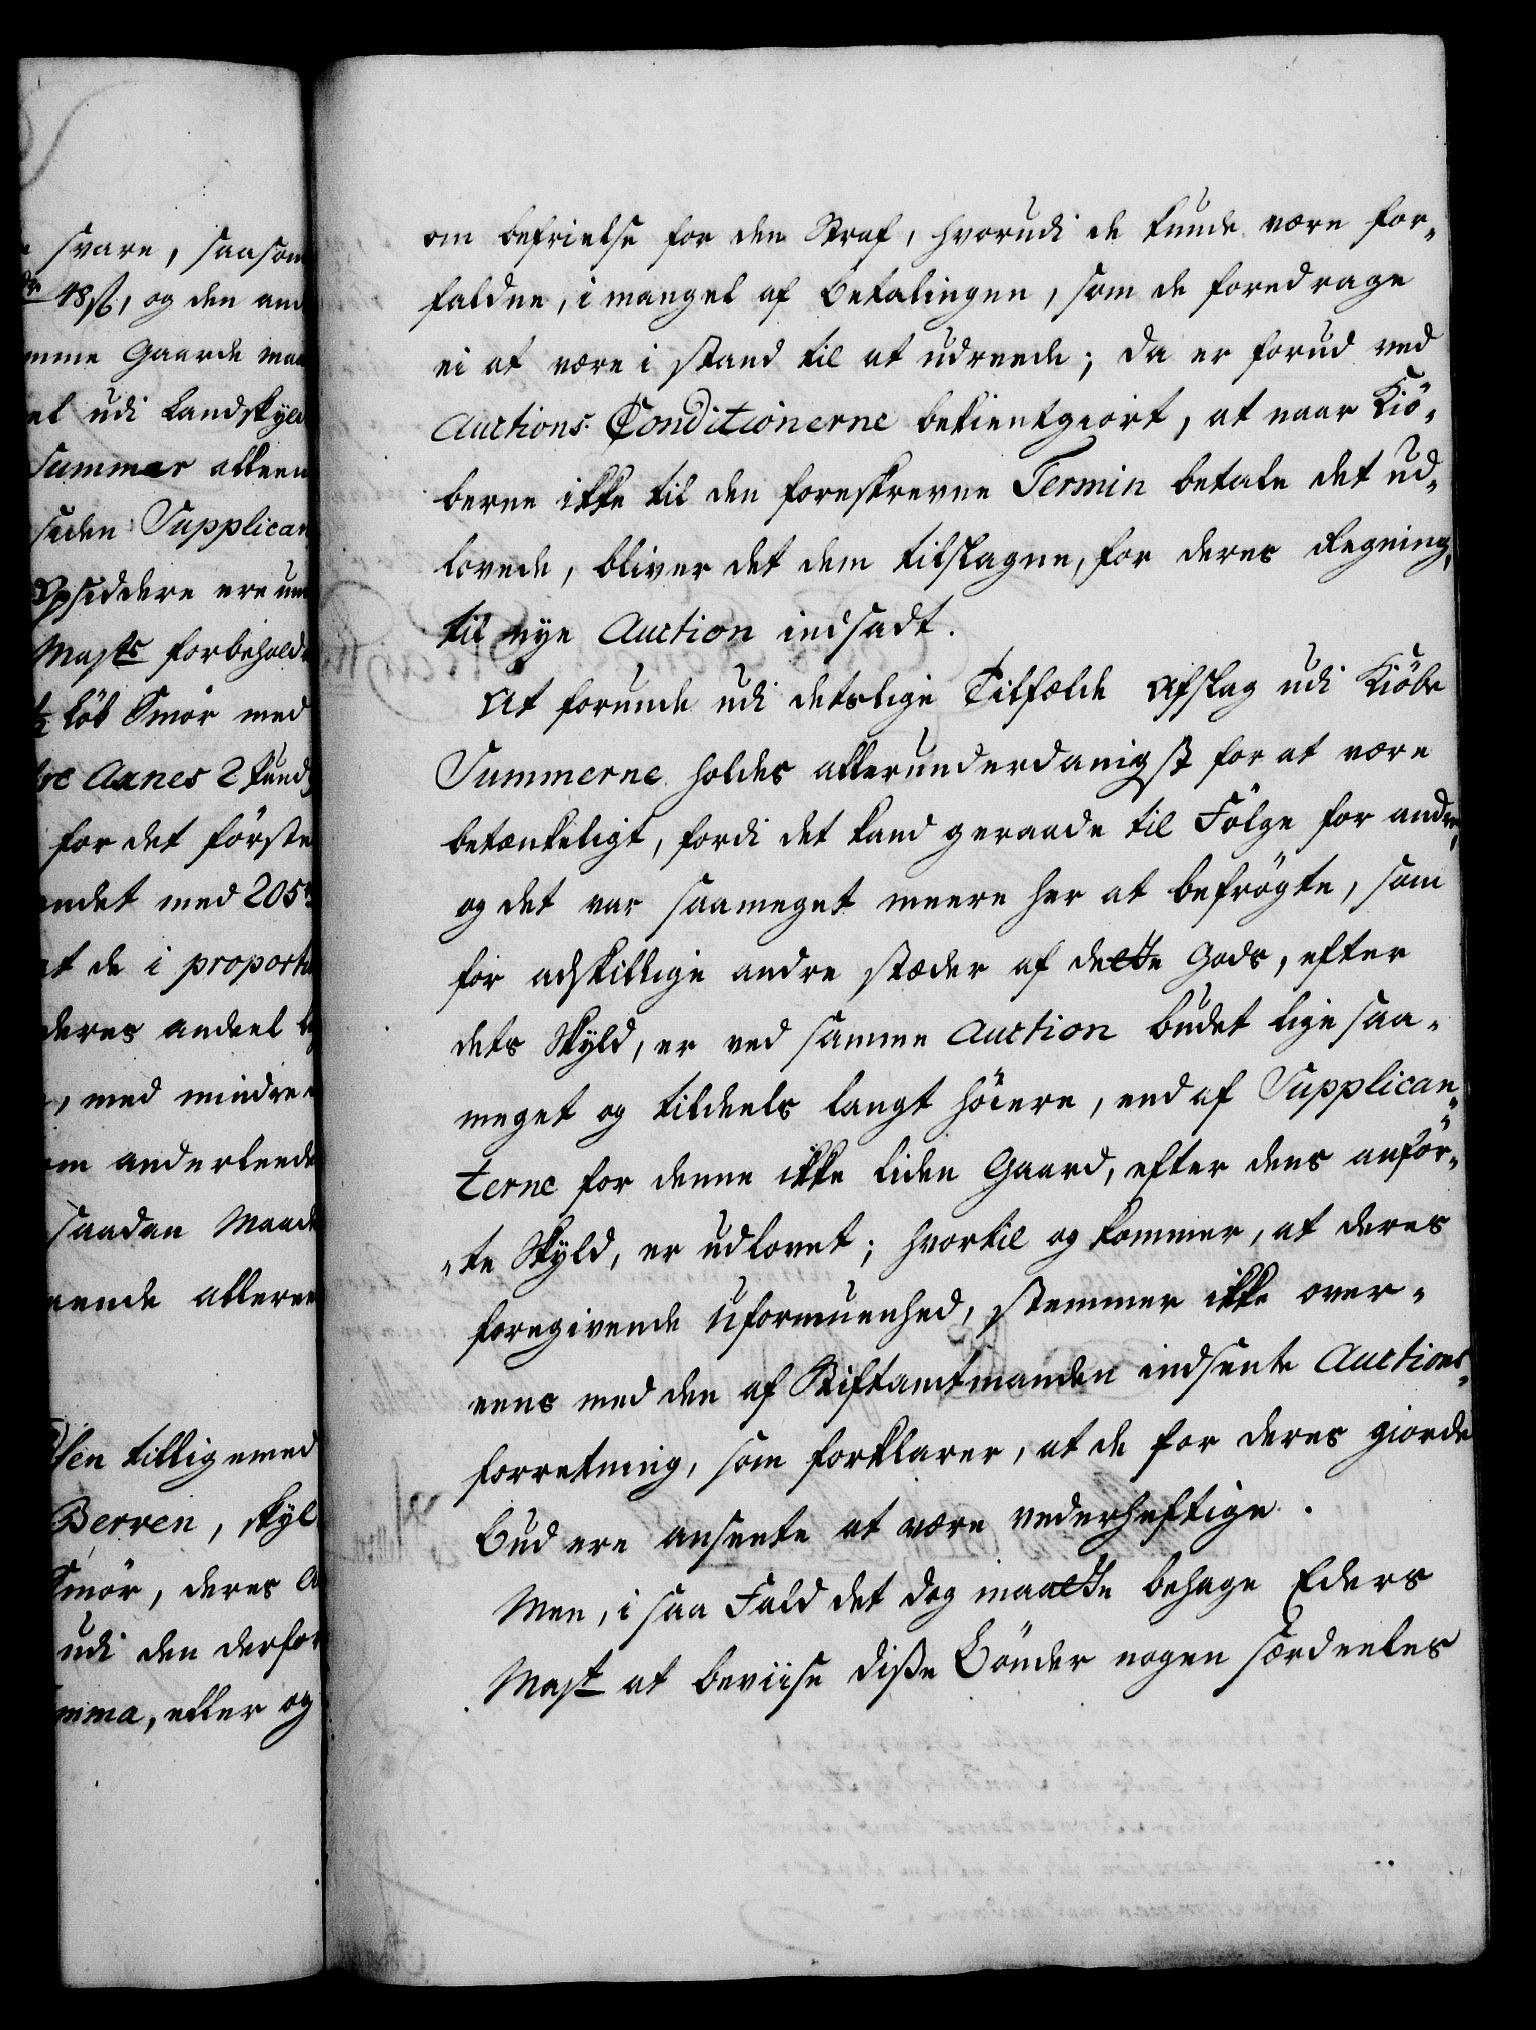 svare, saasom
48 ß, og den and
mme Gaarde maa
et udi Landskyld
Summer alleen
siden Supplican
Opsiddere ere un
Maj:ts forbehold
½ Löb Smör med
Aanes 2 kund
for det förste
ndet med 205
at de i proport
deres andeel
, med mindre
om anderleede
saadan Maade
ende allerun
sen tilligemed
Berven, skyl
Smör, deres A
udi den derfor
mma, eller og
om befrielse for den Straf, hvorudi de kunde være for„
faldne, i mangel af Betalingen, som de foredrage
ei at være i stand til at udreede; da er forud ved
Auctions Conditionerne bekientgiort, at naar Kiö„
berne ikke til den foreskrevne Termin betale det ud„
lovede, bliver det dem tilslagne, for deres Regning,
til nye Auction indsadt.
At forunde udi deslige Tilfælde Afslag udi Kiöbe
Summerne holdes allerunderdanigst for at være
betænkeligt, fordi det kand geraade til Fölge for andre,
og det var saameget meere her at befrögte, som
for adskillige andre stæder af dette Gods, efter
dets Skyld, er ved samme Auction budet lige saa„
meget og tildeels langt höiere, end af Supplican„
terne for denne ikke liden Gaard, efter dens anför„
„te Skyld, er udlovet; hvortil og kommer, at deres
foregivende Uformuenhed, stemmer ikke over„
eens med den af Stiftamtmanden indsente Auctions„
forretning, som forklarer, at de for deres giorde
Bud ere ansente at være vederheftige.
Men, i saa Fald det dog maatte behage Eders
Maj:t at beviise disse Bönder nogen særdeeles